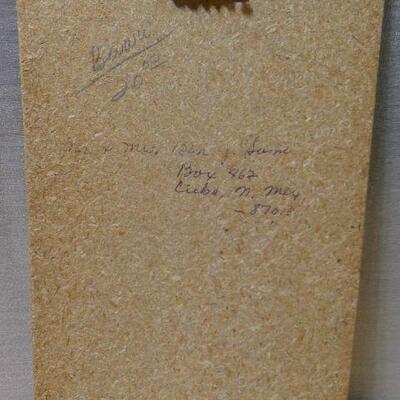 20.00
Mr. & Mrs. Ben J.
Box 462
Cuba, N. Mex
- 87013